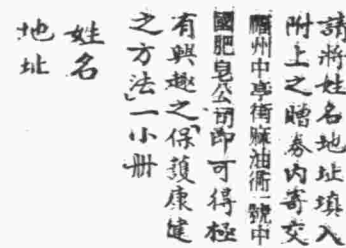 請將姓名地址填入
附上之贈券內寄交
福州中亭街麻油衕一號中
國肥皂公司即可得極
有興趣之「保護康健
之方法」一小册
姓名
地址